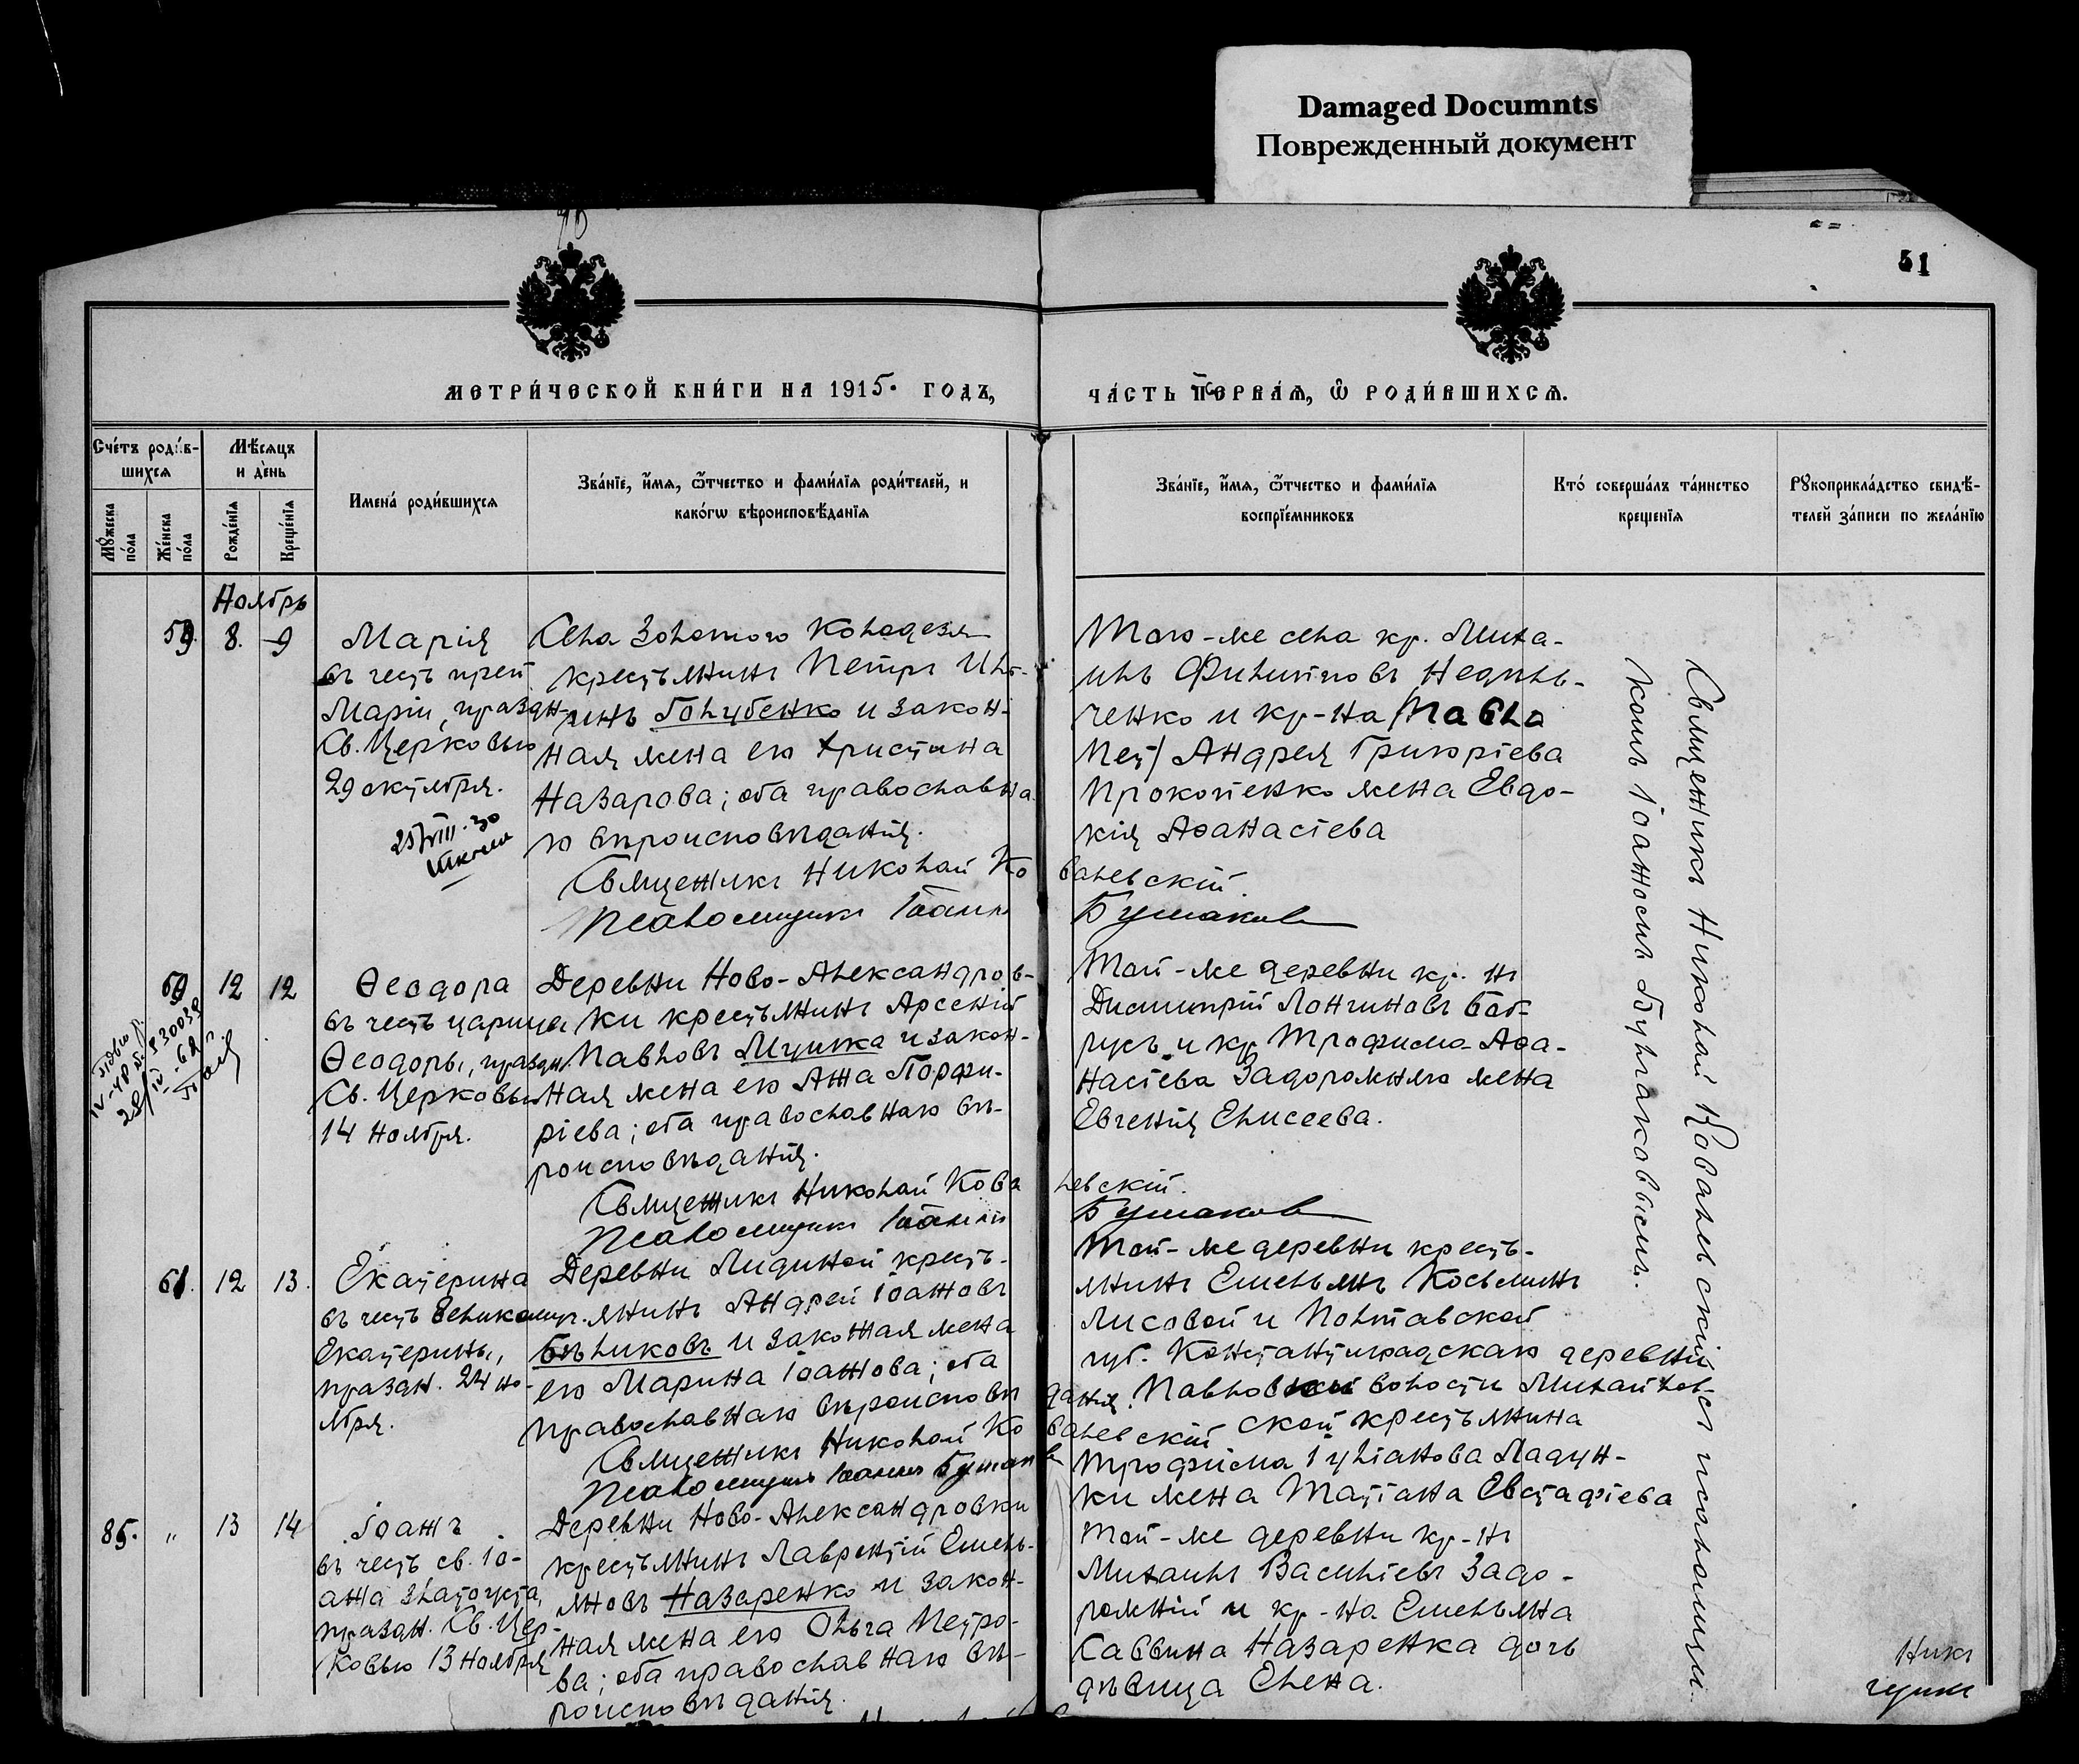 Damaged Documnts
Поврежденный документ
51
МЕТРИ́ЧЕСКОЙ КНИ́ГИ НА 1915. ГОДЪ,
ЧА́СТЬ ПЕРВАЯ, Ѡ РОДИ́ВШИХСЯ.
Сче́тъ роди́в-
шихся
Мѣ́сяцъ
и де́нь
Мꙋ́жеска
по́ла
Же́нска
по́ла
Рожде́нїя
Креще́нїя
Имена́ роди́вшихся
Зва́нїе, и́мя, ѻ҆́тчество и фами́лїя роди́телей, и
како́гѡ вѣроисповѣ́данїя
Зва́нїе, и́мя, ѻ҆́тчество и фами́лїя
воспрїе́мниковъ
Кто́ соверша́лъ та́инство
креще́нїя
Рꙋкоприкла́дство свидѣ́-
телей за́писи по жела́нїю
Ноябрь
59. 8. 9
Марія
въ честь преп.
Маріи, праздн.
Св. Церковью
29 октября.
25/VIII-30
Села Золотого Колодезя
крестьянинъ Петръ Иль-
инъ Голубенко и закон-
ная жена его Христина
Назарова; оба православна
го вѣроисповѣданія.
Священникъ Николай Ко
валевскій.
Псаломщикъ Іоаннъ
Бушаков
Того-же села кр. Миха-
илъ Филипповъ Недиль-
ченко и кр-на /Павла
Пет/ Андрея Григоріева
Прокопенко жена Евдо-
кія Аѳанасіева
60 12 12
Ѳеодора
въ честь царицы
Ѳеодоры, праздн.
Св. Церковью
14 ноября.
Деревни Ново-Александров-
ки крестьянинъ Арсеній
Павловъ Мушка и закон-
ная жена его Анна Порфи-
ріева; оба православнаго вѣ-
роисповѣданія.
Священникъ Николай Кова
левскій.
Псаломщикъ Іоаннъ
Бушаков
Той-же деревни кр. нъ
Димитрій Лонгиновъ Боб-
русь и кр. Трофима Аѳа-
насіева Задорожняго жена
Евгенія Елисеева.
61. 12 13.
Екатерина
въ честь великомуч.
Екатерины,
праздн. 24 но-
ября.
Деревни Лидиной кресть-
янинъ Андрей Іоанновъ
Бѣликовъ и законная жена
его Марина Іоаннова; оба
православнаго вѣроисповѣ
данія.
Священникъ Николай Ко
валевскій
Псаломщикъ Іоаннъ Бушаков
Той-же деревни кресть-
янинъ Емельянъ Косьминъ
Лисовой и Полтавской
губ. Константиноградскаго деревни
Павловкой волости Михайлов-
ской крестьянина
Трофима Іуліанова Ладун-
ки жена Татіана Евстафіева
85. " 13 14
Іоаннъ
въ честь св. Іо-
анна Златоуста,
праздн. Св. Цер-
ковью 13 ноября
Деревни Ново-Александровки
крестьянинъ Лаврентій Емель-
яновъ Назаренко и закон-
ная жена его Ольга Петро-
ва; оба православнаго вѣ-
роисповѣданія.
Той-же деревни кр-нъ
Михаилъ Василіевъ Задо-
рожній и кр-на Емельяна
Саввина Назаренка дочь
дѣвица Елена.
Священникъ Николай Ковалевскій съ псаломщи-
комъ Іоанномъ Бушаковымъ.